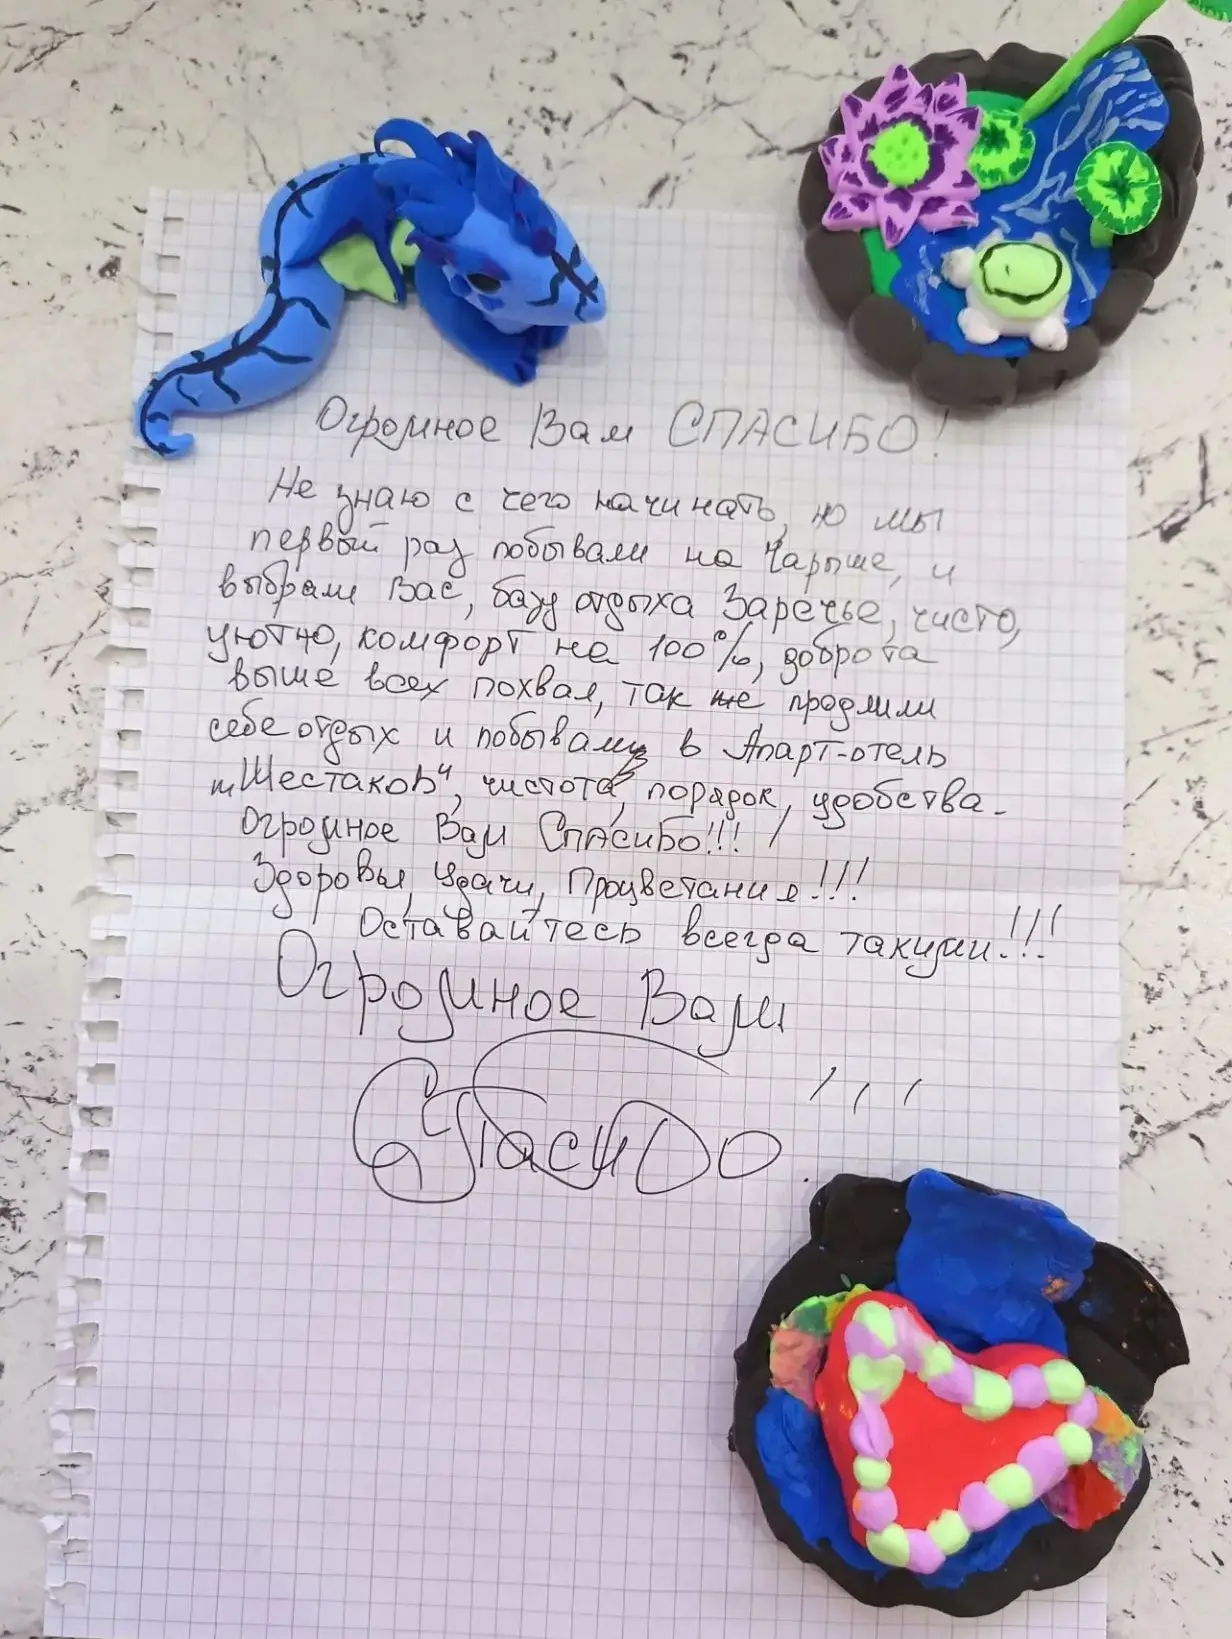 Огромное Вам СПАСИБО!
Не знаю с чего начинать, но мы
первый раз побывали на Чарыше, и
выбрали Вас, базу отдыха Заречье, чисто,
уютно, комфорт на 100%, доброта
выше всех похвал, так же продлили
себе отдых и побывали в Апарт-отель
"Шестаковъ", чистота, порядок, удобства.
Огромное Вам Спасибо!!!
Здоровья, Удачи, Процветания!!!
Оставайтесь всегда такими!!!
Огромное Вам
Спасибо!!!